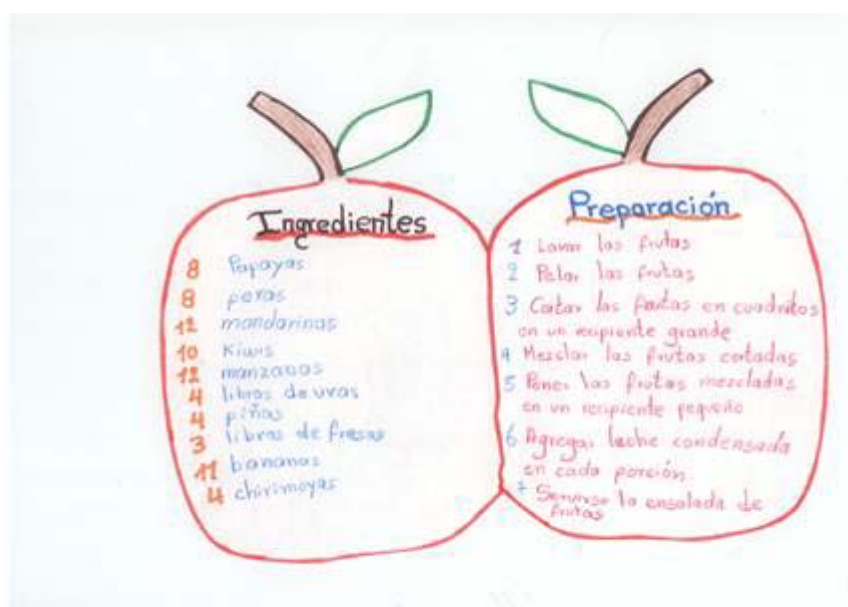 Ingredientes
8 Papayas
8 peras
12 mandarinas
10 Kiwis
12 manzanas
4 libras de uvas
4 piñas
3 libras de fresas
11 bananas
4 chirimoyas
Preparación
1 Lavar las frutas
2 Pelar las frutas
3 Cortar las frutas en cuadritos
en un recipiente grande
4 Mezclar las frutas cortadas
5 Poner las frutas mezcladas
en un recipiente pequeño
6 Agregar leche condensada
en cada porción.
7 Servirse la ensalada de
frutas